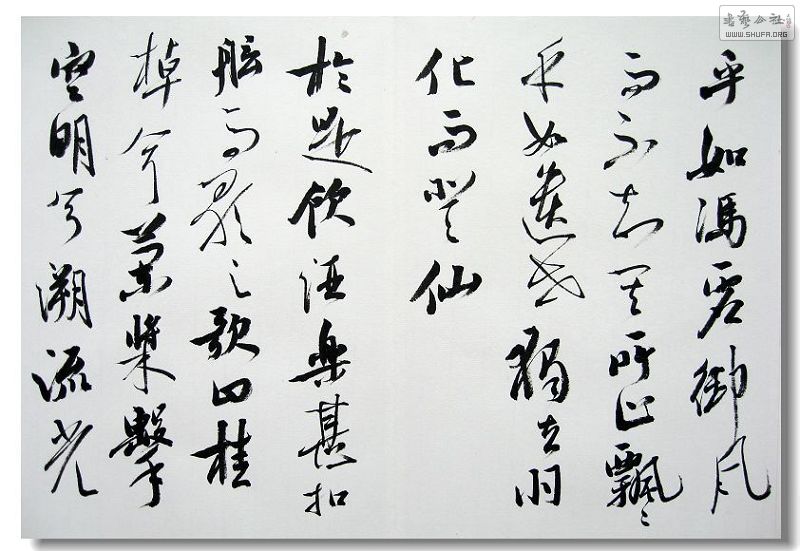 乎如馮虛御風
而不知其所止飄〻
乎如遺世獨立羽
化而登仙
於是飲酒樂甚扣
舷而歌之歌曰桂
棹兮蘭槳擊
空明兮溯流光
书艺公社
WWW.SHUFA.ORG